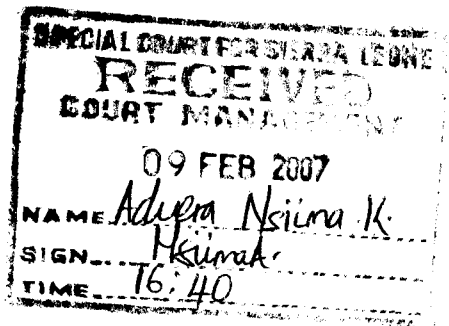 SPECIAL COURT FOR SIERRA LEONE
RECEIVED
COURT MANAGEMENT
09 FEB 2007
NAME Aduera Nsiima K.
SIGN
TIME 16:40